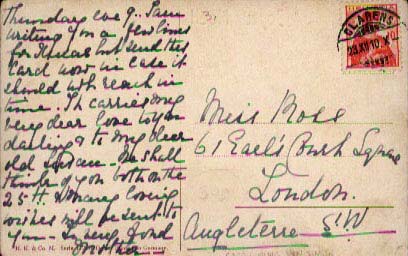 Thursday eve 9. I am
writing you a few lines
for Xmas but send this
card now in case it
should not reach in
time. It carries my
very dear love to you
darling & to my dear
old. We shall
think of you both on the
25th & many loving
wishes will be sent to
you. Yr very fond
Mother
CLARENS
23.XII.10. X
Miss Ross
61 Earl's Court Square
London.
Angleterre S.W